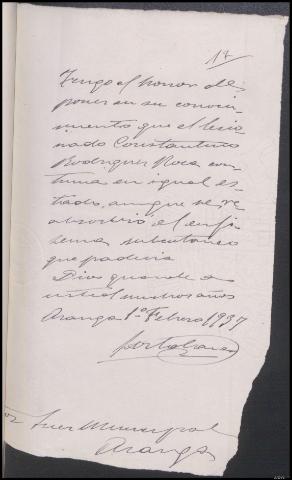 17
Tengo el honor de
poner en su conoci-
miento que el lesio-
nado Constantino
Rodriguez Roca con-
tinua en igual es-
tado, aunque se re
absorbió el enfi-
sema subcutaneo
que padecia
Dios guarde a
usted muchos años
Aranga 1º Febrero 1937
Juez Municipal
Aranga